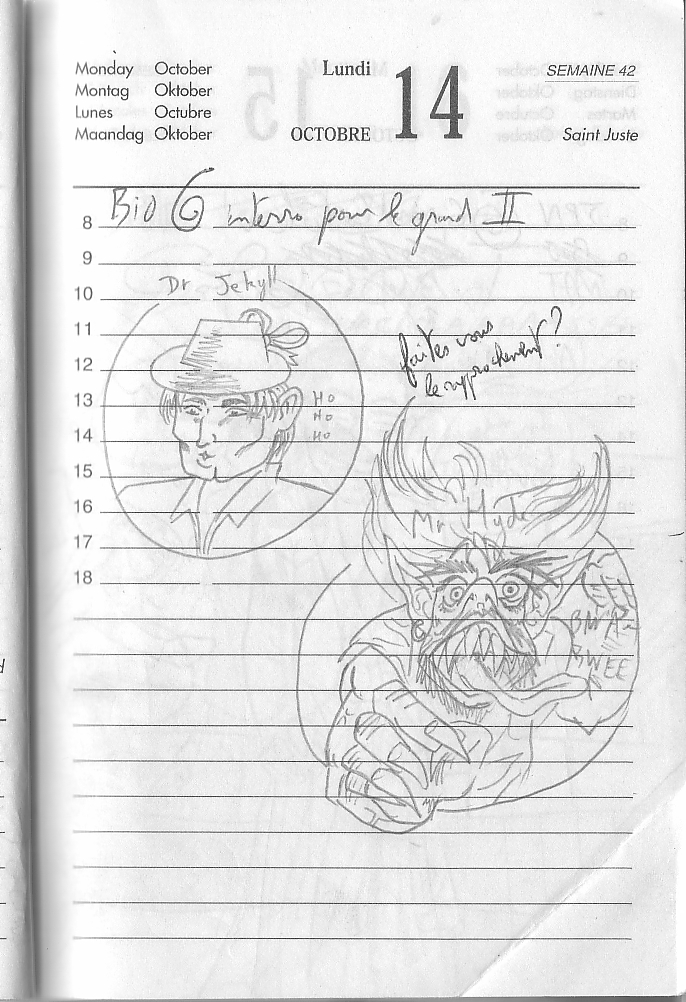 Monday October
Montag Oktober
Lunes Octubre
Maandag Oktober
Lundi
OCTOBRE
14
SEMAINE 42
Saint Juste
8
Bio 6 interro pour le grand II
9
Dr Jekyll
10
11
faites vous
le rapprochement?
12
13
HO
HO
14
HO
15
16
Mr Hyde
17
18
BWEE